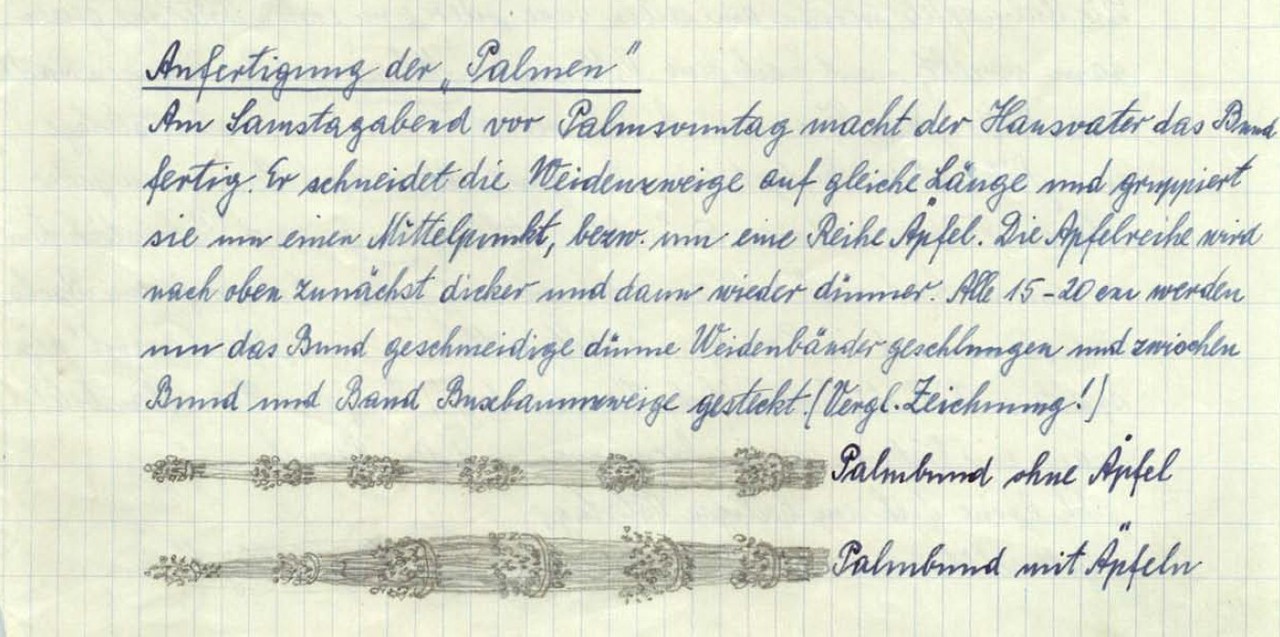 Anfertigung der „Palmen"
Am Samstagabend vor Palmsonntag macht der Hausvater das Bund
fertig. Er schneidet die Weidenzweige auf gleiche Länge und gruppiert
sie um einen Mittelpunkt, bezw. um eine Reihe Äpfel. Die Apfelreihe wird
nach oben zunächst dicker und dann wieder dünner. Alle 15-20 cm werden
um das Bund geschmeidige dünne Weidenbänder geschlungen und zwischen
Bund und Band Buxbaumzweige gesteckt. (Vergl. Zeichnung!)
Palmbund ohne Äpfel
Palmbund mit Äpfeln